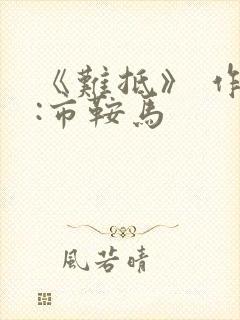 《難抵》 作
:布鞍馬
風若晴